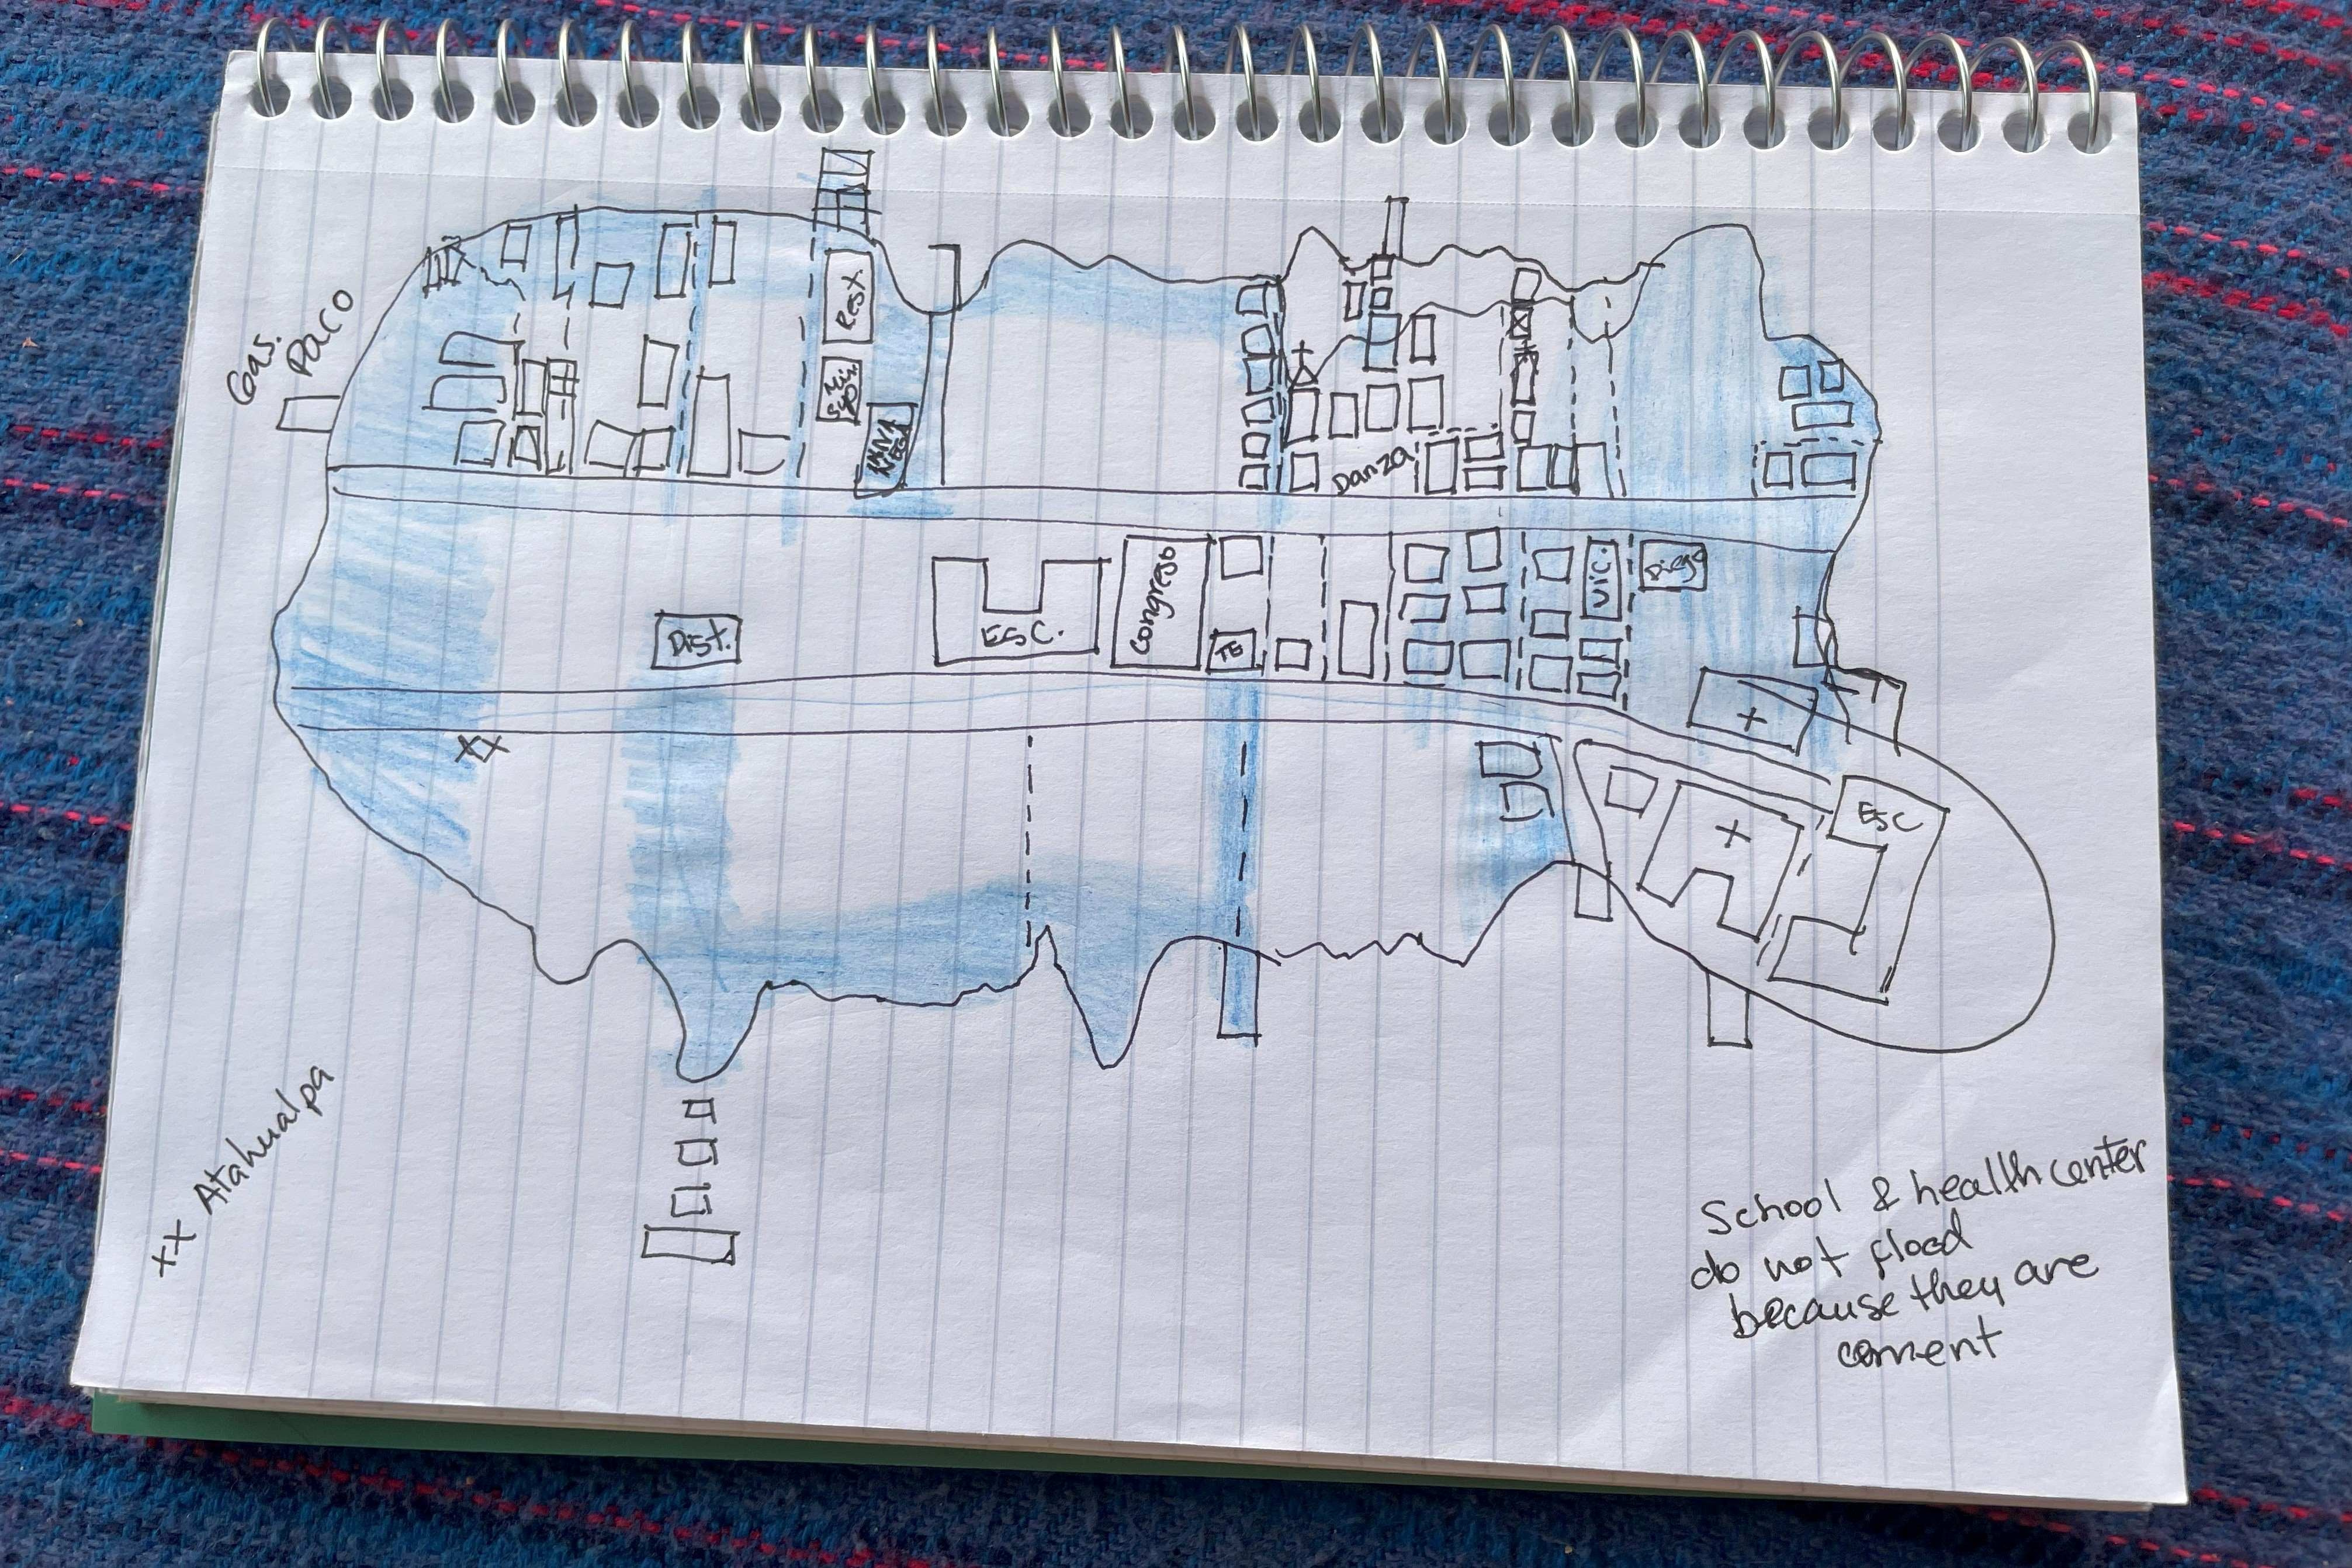 Gas.
Paco
Rest
Danza
Congreso
VIC.
Diego
Dist.
ESC.
TE
XX
ESC
XX Atahualpa
School & health center
do not flood
because they are
cement